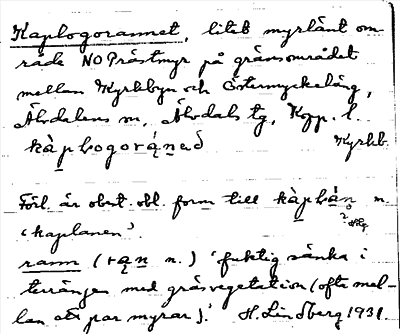 Kaplogorannet, litet myrlänt om-
råde NO Prästmyr på gränsområdet
mellan Kyrkbyn och Östermyckeläng,
Älvdalens sn, Älvdals tg, Kopp. l.
kàpbogorą́nað Kyrkb.
Förl. är obest. obl. form till kàpbàn m.
'kaplanen'.
rann (rąn n.) 'fuktig sänka i
terrängen med gräsvegetation (ofta mel-
lan ett par myrar).' H. Lindberg 1931.